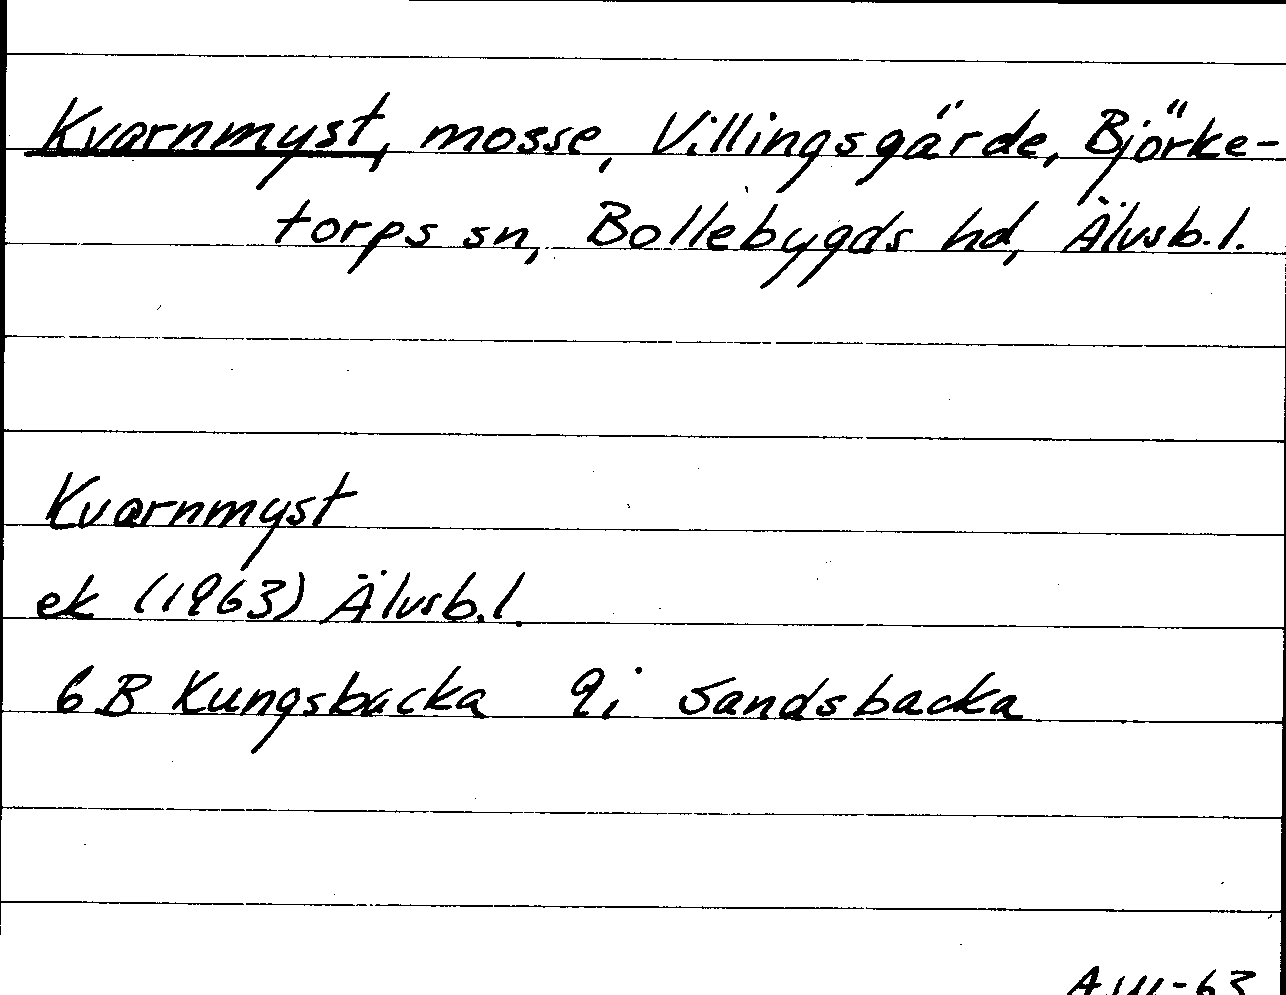 Kvarnmyst, mosse, Villingsgärde, Björke-
torps sn, Bollebygds hd, Älvsb.l.
Kvarnmyst
ek (1963) Älvsb.l.
6 B Kungsbacka 9i Sandsbacka